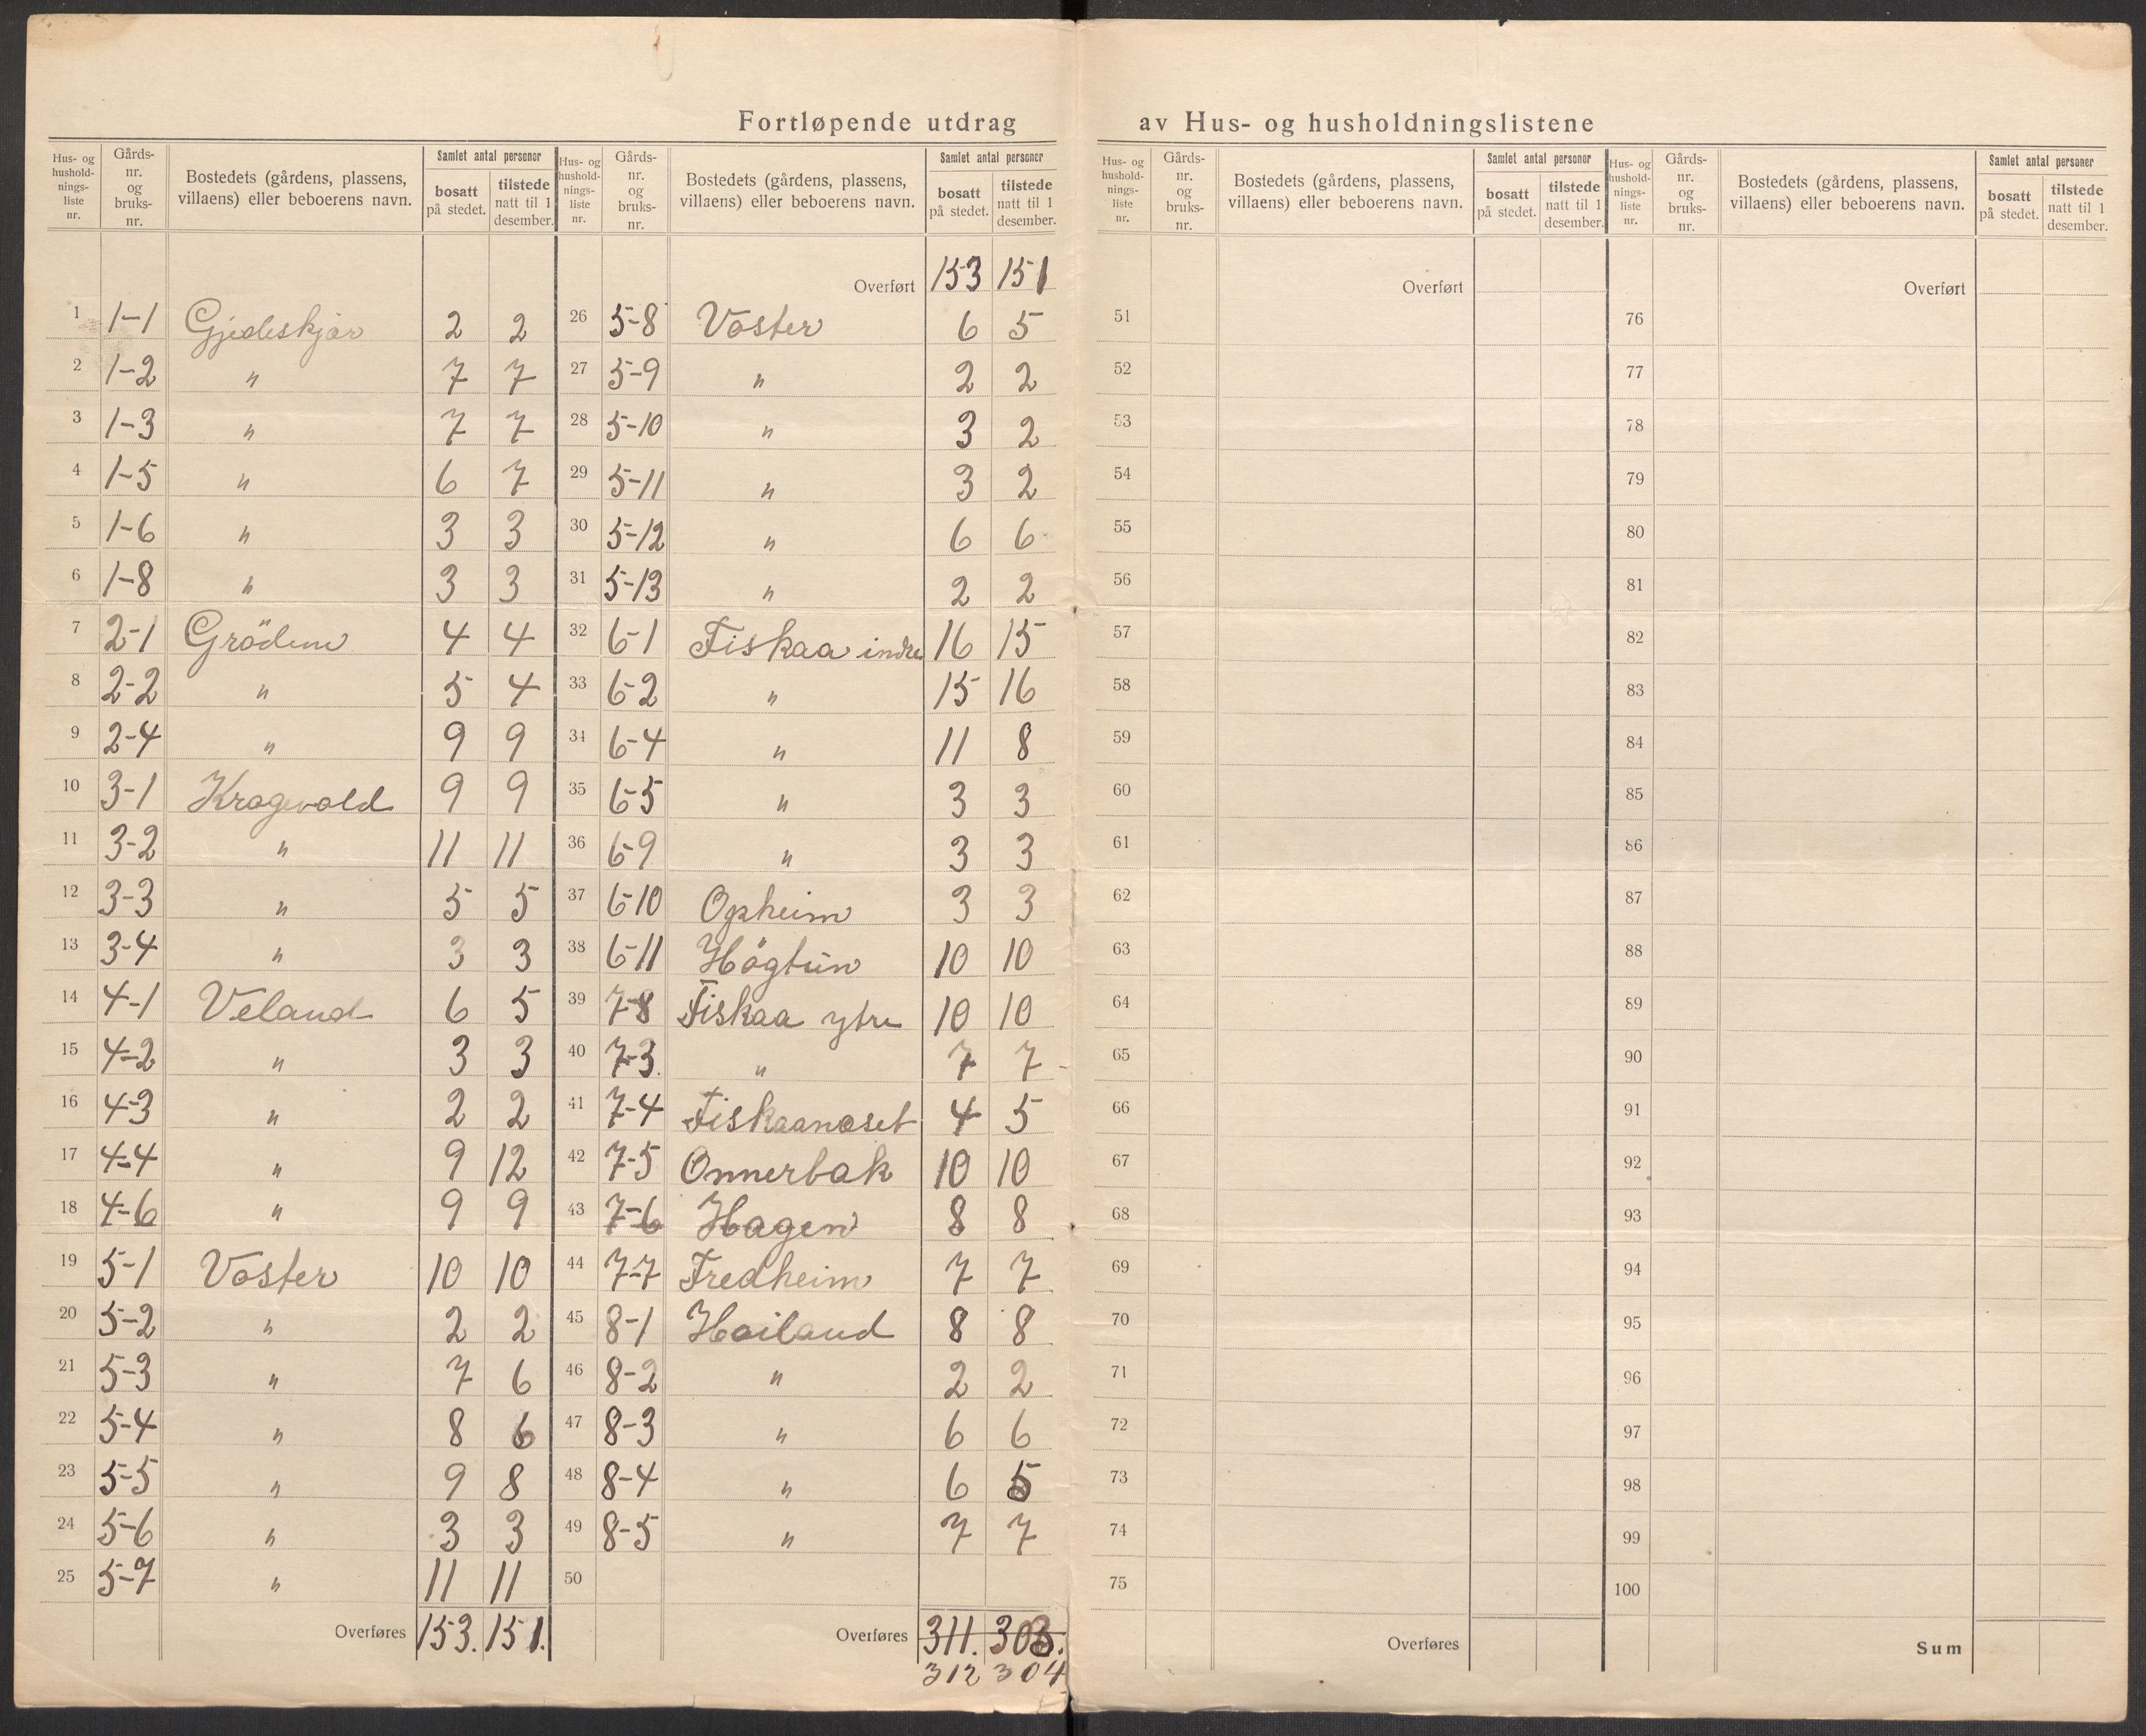 Fortløpende utdrag av Hus- og husholdningslistene
Hus- og hushold-nings-liste nr. Gårds-nr. og bruks-nr. Bostedets (gårdens, plassens, villaens) eller beboerens navn. Samlet antal personer bosatt på stedet. tilstede natt til 1 desember.
1 1-1 Gjedeskjær 2 2
2 1-2 " 7 7
3 1-3 " 7 7
4 1-5 " 6 7
5 1-6 " 3 3
6 1-8 " 3 3
7 2-1 Grödem 4 4
8 2-2 " 5 4
9 2-4 " 9 9
10 3-1 Kragevold 9 9
11 3-2 " 11 11
12 3-3 " 5 5
13 3-4 " 3 3
14 4-1 Veland 6 5
15 4-2 " 3 3
16 4-3 " 2 2
17 4-4 " 9 12
18 4-6 " 9 9
19 5-1 Voster 10 10
20 5-2 " 2 2
21 5-3 " 7 6
22 5-4 " 8 6
23 5-5 " 9 8
24 5-6 " 3 3
25 5-7 " 11 11
Overføres 153. 151.
Hus- og hushold-nings-liste nr. Gårds-nr. og bruks-nr. Bostedets (gårdens, plassens, villaens) eller beboerens navn. Samlet antal personer bosatt på stedet. tilstede natt til 1 desember.
Overført 153 151
26 5-8 Voster 6 5
27 5-9 " 2 2
28 5-10 " 3 2
29 5-11 " 3 2
30 5-12 " 6 6
31 5-13 " 2 2
32 6-1 Fiskaa indre 16 15
33 6-2 " 15 16
34 6-4 " 11 8
35 6-5 " 3 3
36 6-9 " 3 3
37 6-10 Opheim 3 3
38 6-11 Högtun 10 10
39 7-8 Fiskaa ytre 10 10
40 7-3. " 7 7
41 7-4 Fiskaanæset 4 5
42 7-5 Onnerbak 10 10
43 7-6 Hagen 8 8
44 7-7 Fredheim 7 7
45 8-1 Hoiland 8 8
46 8-2 " 2 2
47 8-3 " 6 6
48 8-4 " 6 5
49 8-5 " 7 7
50
Overføres 311. 303.
312 304
Hus- og hushold-nings-liste nr. Gårds-nr. og bruks-nr. Bostedets (gårdens, plassens, villaens) eller beboerens navn. Samlet antal personer bosatt på stedet. tilstede natt til 1 desember.
Overført
51
52
53
54
55
56
57
58
59
60
61
62
63
64
65
66
67
68
69
70
71
72
73
74
75
Overføres
Hus- og hushold-nings-liste nr. Gårds-nr. og bruks-nr. Bostedets (gårdens, plassens, villaens) eller beboerens navn. Samlet antal personer bosatt på stedet. tilstede natt til 1 desember.
Overført
76
77
78
79
80
81
82
83
84
85
86
87
88
89
90
91
92
93
94
95
96
97
98
99
100
Sum